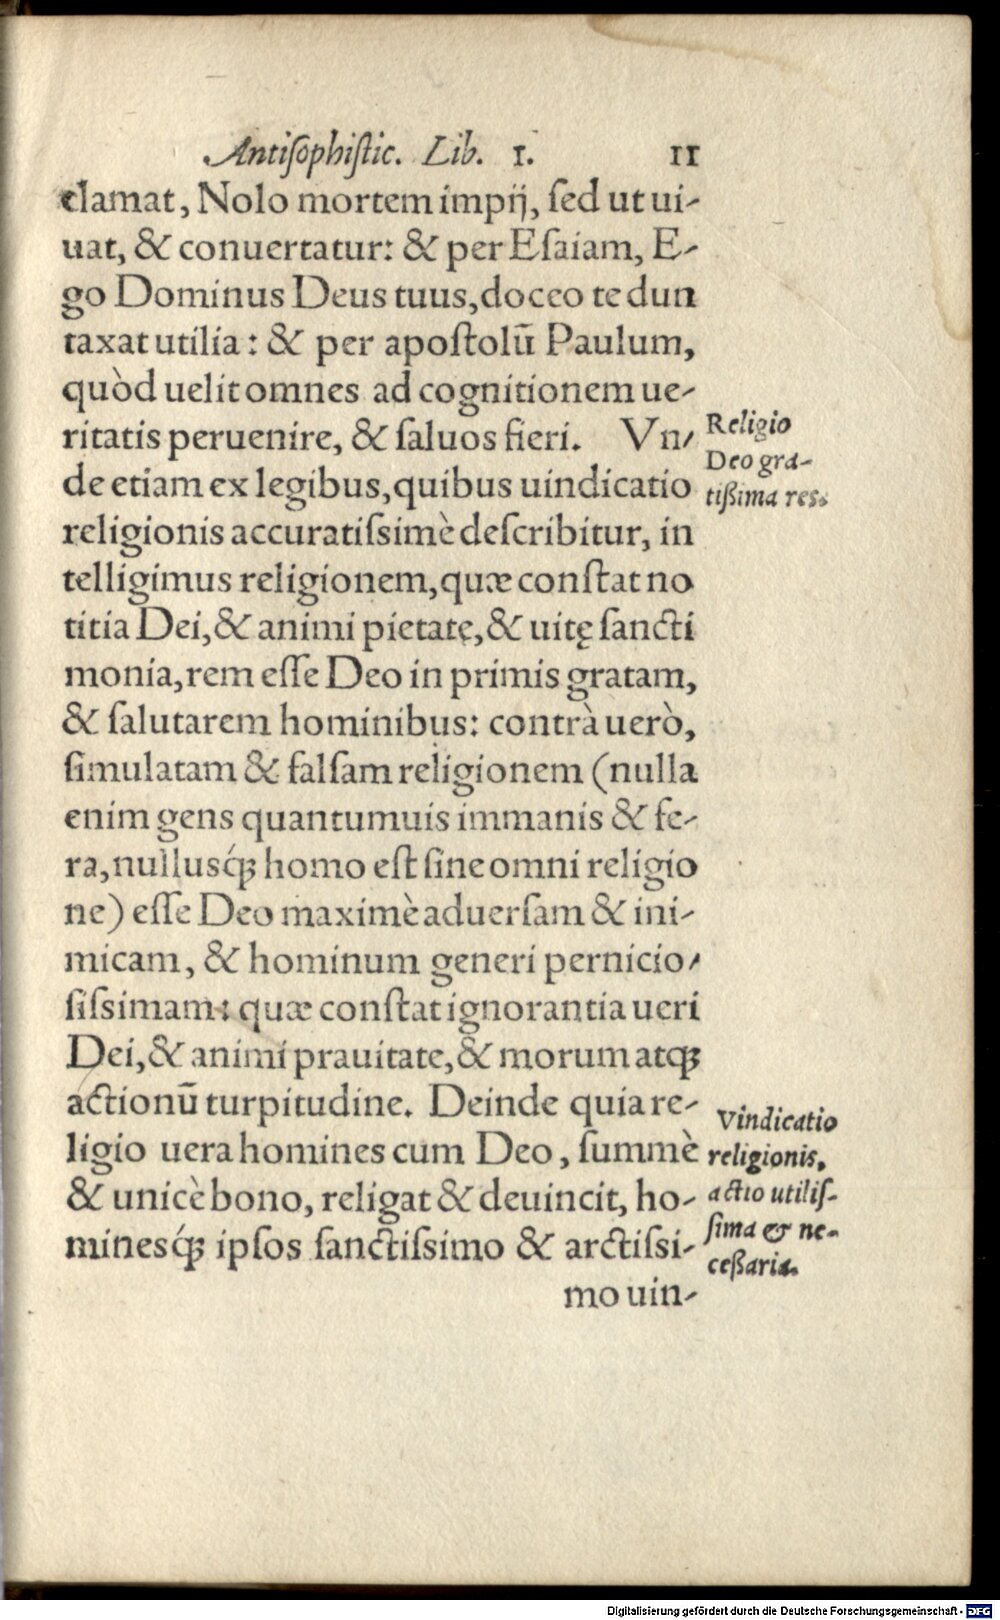 Antiſophiſtic. Lib. 1. 11
clamat, Nolo mortem impij, ſed ut ui-
uat, & conuertatur: & per Eſaiam, E-
go Dominus Deus tuus, doceo te dun
taxat utilia: & per apoſtolū Paulum,
quòd uelit omnes ad cognitionem ue-
ritatis peruenire, & ſaluos fieri. Vn-
Religio
Deo gra-
tißima res.
de etiam ex legibus, quibus uindicatio
religionis accuratiſsimè deſcribitur, in
telligimus religionem, quæ conſtat no
titia Dei, & animi pietate, & uitę ſancti
monia, rem eſſe Deo in primis gratam,
& ſalutarem hominibus: contrà uerò,
ſimulatam & falſam religionem (nulla
enim gens quantumuis immanis & fe-
ra, nullusq́ꝫ homo eſt ſine omni religio
ne) eſſe Deo maximè aduerſam & ini-
micam, & hominum generi pernicio-
ſiſsimam: quæ conſtat ignorantia ueri
Dei, & animi prauitate, & morum atqꝫ
actionū turpitudine. Deinde quia re-
ligio uera homines cum Deo, ſummè
& unicè bono, religat & deuincit, ho-
minesq́ꝫ ipſos ſanctiſsimo & arctiſsi-
Vindicatio
religionis,
actio utiliſ-
ſima & ne-
ceßaria.
mo uin-
Digitalisierung gefördert durch die Deutsche Forschungsgemeinschaft - DFG